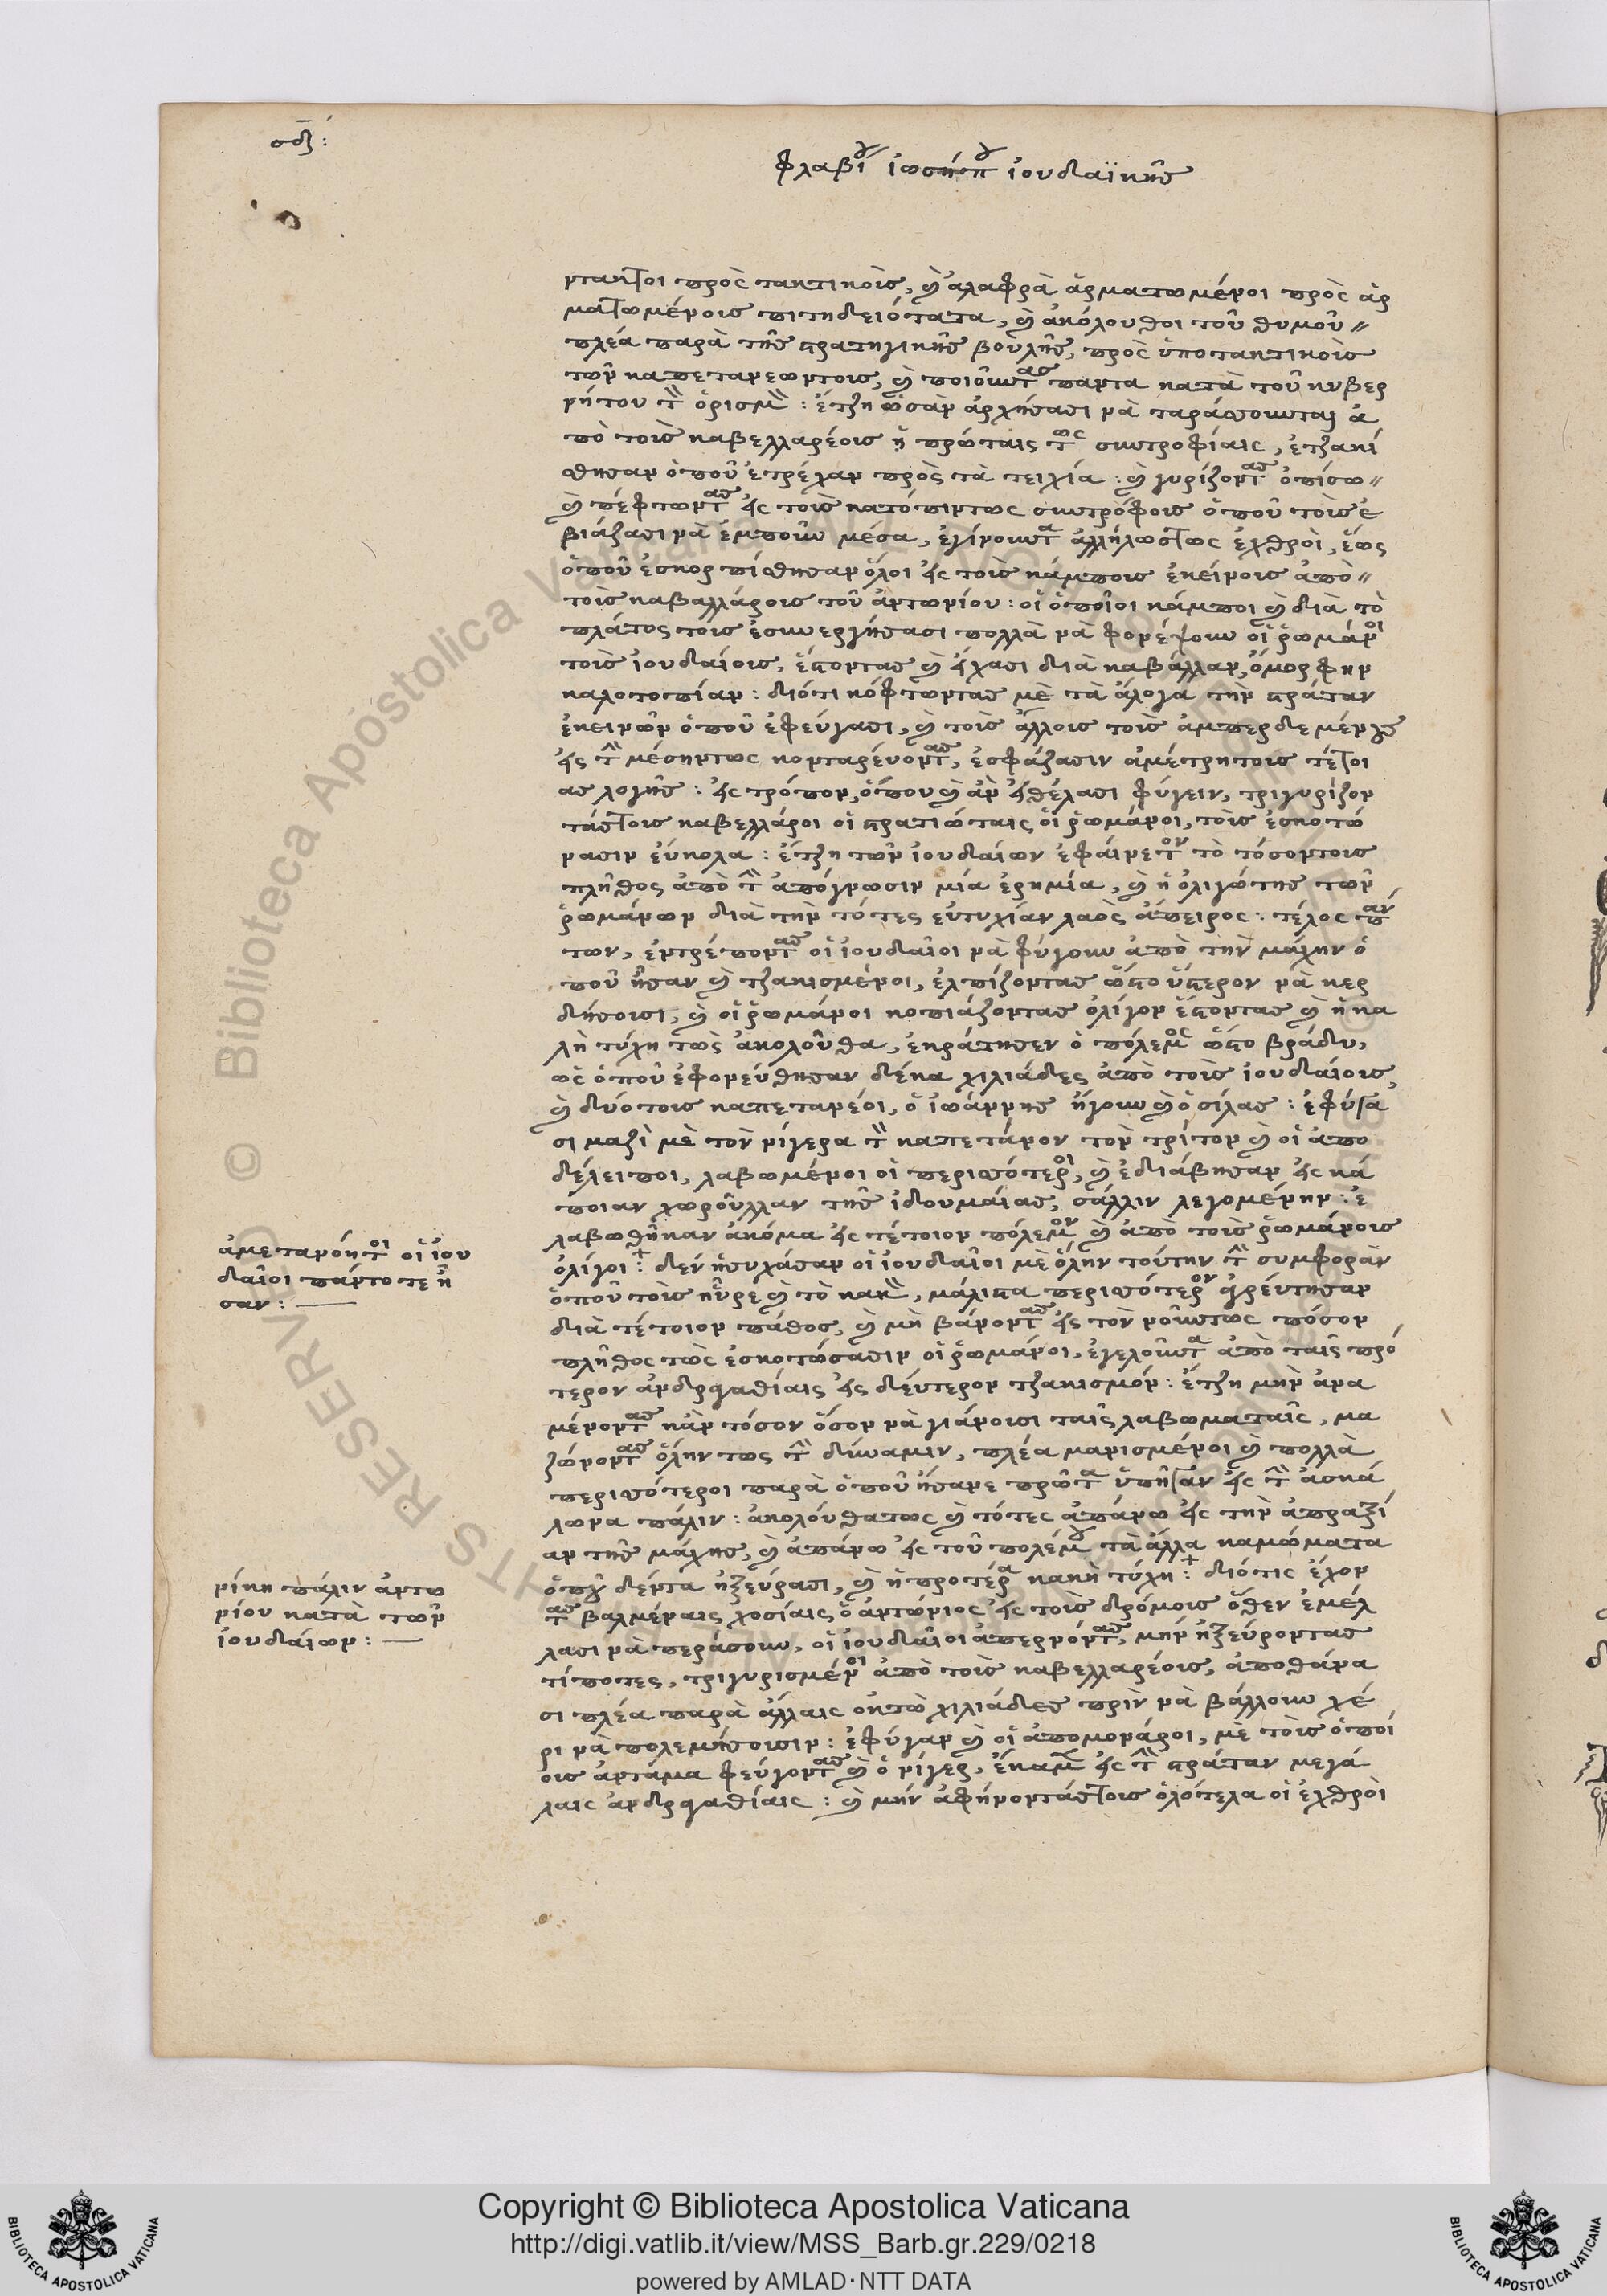 σδ:
φλαβίου ἰωσήπου ἰουδαϊκῆς
νταιτοι πρὸς τακτικοὺς, καὶ ἀλαφρὰ ἀρματωμένοι πρὸς ἀρ
ματωμένους πιτηδειότατα, καὶ ἀκόλουθοι τοῦ θυμοῦ
πλέα παρὰ τῆς στρατηγικῆς βουλῆς, πρὸς ὑποτακτικοὺς
τῶν καπετανέωντους, καὶ ποιοῦντας πάντα κατὰ τοῦ κυβερ
νήτου τοῦ ὁρισμοῦ: ἔτζη ὡσὰν ἀρχήσασι νὰ ταράσσουνται ἀ
πὸ τοὺς καβελλαρέους ἡ πρώταις τως συντροφίαις, ἐτζακί
σθησαν ὁποῦ ἐτρέχαν πρὸς τὰ τειχία: καὶ γυρίζοντας ὀπίσω
καὶ πέφτωντας εἰς τοὺς κατόπιντως συντρόφους ὁποῦ τοὺς ἐ
βιάζασι νὰ ἐμποῦν μέσα, ἐγίνουντα ἀλλήλωστως ἐχθροὶ, ἕως
ὁποῦ ἐσκορπίσθησαν ὅλοι εἰς τοὺς κάμπους ἐκείνους ἀπὸ
τοὺς καβαλλάρους τοῦ ἀντωνίου: οἱ ὁποῖοι κάμποι καὶ διὰ τὸ
πλάτος τους ἐσυνεργήσασι πολλὰ νὰ φονέψουν οἱ ῥωμάνοι
τοὺς ἰουδαίους, ἔστοντας καὶ εἴχασι διὰ καβάλλαν, ὄμορφην
καλοτοπίαν: διότι κόφτωντας μὲ τὰ ἄλογα τὴν στράταν
ἐκεινῶν ὁποῦ ἐφεύγασι, καὶ τοὺς ἄλλους τοὺς ἀμπερδεμένους
εἰς τὴ μέσηντως κονταρέυοντας, ἐσφάζασιν ἀμέτρητους τέτοι
ας λογῆς: εἰς τρόπον, ὅπου καὶ ἂν εἰθέλασι φύγειν, τριγυρίζον
τάστους καβελλάροι οἱ στρατιώταις οἱ ῥωμάνοι, τοὺς ἐσκοτώ
νασιν εὔκολα: ἔτζη τῶν ἰουδαίων ἐφάινετον τὸ τόσοντους
πλῆθος ἀπὸ τὴ ἀπόγνωσιν μία ἐρημία, καὶ ἡ ὀλιγώτης τῶν
ῥωμάνων διὰ τὴν τότες εὐτυχίαν λαὸς ἄπειρος: τέλος πάν
των, ἐντρέποντας οἱ ἰουδαῖοι νὰ φύγουν ἀπὸ τὴν μάχην ὁ
ποῦ ἦσαν καὶ τζακισμένοι, ἐλπίζοντας ὥστο ὕστερον νὰ κερ
δήσουσι, καὶ οἱ ῥωμάνοι κοπιάζοντας ὀλίγον ἔστοντας καὶ ἡ κα
λὴ τύχη τοὺς ἀκολούθα, ἐκράτησεν ὁ πόλεμος ὥστο βράδυ,
ὡς ὁποῦ ἐφονεύθησαν δέκα χιλιάδες ἀπὸ τοὺς ἰουδαίους,
καὶ δυότους καπετανέοι, ὁ ἰωάννης ἤγουν καὶ ὁ σίλας: ἐφύγα
σι μαζὶ μὲ τὸν νίγερα τὸ καπετάνον τὸν τρίτον καὶ οἱ ἀπο
δέλειποι, λαβωμένοι οἱ περισσότεροι, καὶ ἐδιάβησαν εἰς κά
ποιαν χωροῦλλαν τῆς ἰδουμαίας, σάλλιν λεγομένην: ἐ
λαβωθῆκαν ἀκόμα εἰς τέτοιον πόλεμον καὶ ἀπὸ τοὺς ῥωμάνους
ὀλίγοι: δὲν ἡσυχάσαν οἱ ἰουδαῖοι μὲ ὅλην τούτην τὴ συμφορὰν
ὁποῦ τοὺς ηὗρε καὶ τὸ κακὸ, μάλιστα περισσότερον ἀγρέυτησαν
διὰ τέτοιον πάθος, καὶ μὴ βάνοντας εἰς τὸν νοῦντως πόσον
πλῆθος τὼς ἐσκοτώσασιν οἱ ῥωμάνοι, ἐγελοῦντα ἀπὸ ταῖς πρό
τερον ἀνδραγαθίαις εἰς δέυτερον τζακισμόν: ἔτζη μὴν ἀνα
μένοντας κἂν τόσον ὅσον νὰ γιάνουσι ταῖς λαβωματαῖς, μα
ζόνοντας ὅλην τως τὴ δύναμιν, πλέα μανισμένοι καὶ πολλὰ
περισσότεροι παρὰ ὁποῦ ἤσανε πρῶτα ὑπῆγαν εἰς τὴ ἀσκά
λωνα πάλιν: ἀκολούθατως καὶ τότες ἀπάνω εἰς τὴν ἀπραξί
αν τῆς μάχης, καὶ ἀπάνω εἰς τοῦ πολέμου τὰ ἄλλα καμώματα
ὁποῦ δέντα ἠξεύρασι, καὶ ἡ προτέρα κακὴ τύχη: διότις ἔχον
τας βαλμέναις χοσίαις ὁ ἀντώνιος εἰς τοὺς δρόμους ὅθεν ἐμέλ
λασι νὰ περάσουν, οἱ ἰουδαῖοι ἀπερνόντας, μὴν ἠξεύροντας
τίποτες, τριγυρισμένοι ἀπὸ τοὺς καβελλαρέους, ἀποθάνα
σι πλέα παρὰ ἄλλαις ὀκτὼ χιλιάδες πρὶν νὰ βάλλουν χέ
ρι νὰ πολεμήσουσιν: ἐφύγαν καὶ οἱ ἀπομονάροι, μὲ τοὺς ὁποί
ους ἀντάμα φεύγοντας καὶ ὁ νίγερ, ἔκαμε εἰς τὴ στράταν μεγά
λαις ἀνδραγαθίαις: καὶ μὴν ἀφήνοντάστους ὁλότελα οἱ ἐχθροὶ
ἀμετανόητοι οἱ ἰου
δαῖοι πάντοτε ἦ
σαν:
νίκη πάλιν ἀντω
νίου κατὰ τῶν
ἰουδαίων:
© Biblioteca Apostolica Vaticana
ALL RIGHTS RESERVED
Copyright © Biblioteca Apostolica Vaticana
http://digi.vatlib.it/view/MSS_Barb.gr.229/0218
powered by AMLAD·NTT DATA
BIBLIOTECA APOSTOLICA VATICANA
BIBLIOTECA APOSTOLICA VATICANA